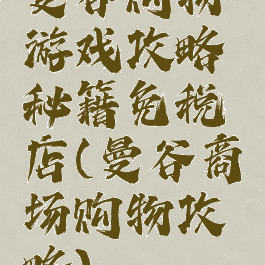 曼谷购物
游戏攻略
秘籍免税
店(曼谷商
场购物攻
略)